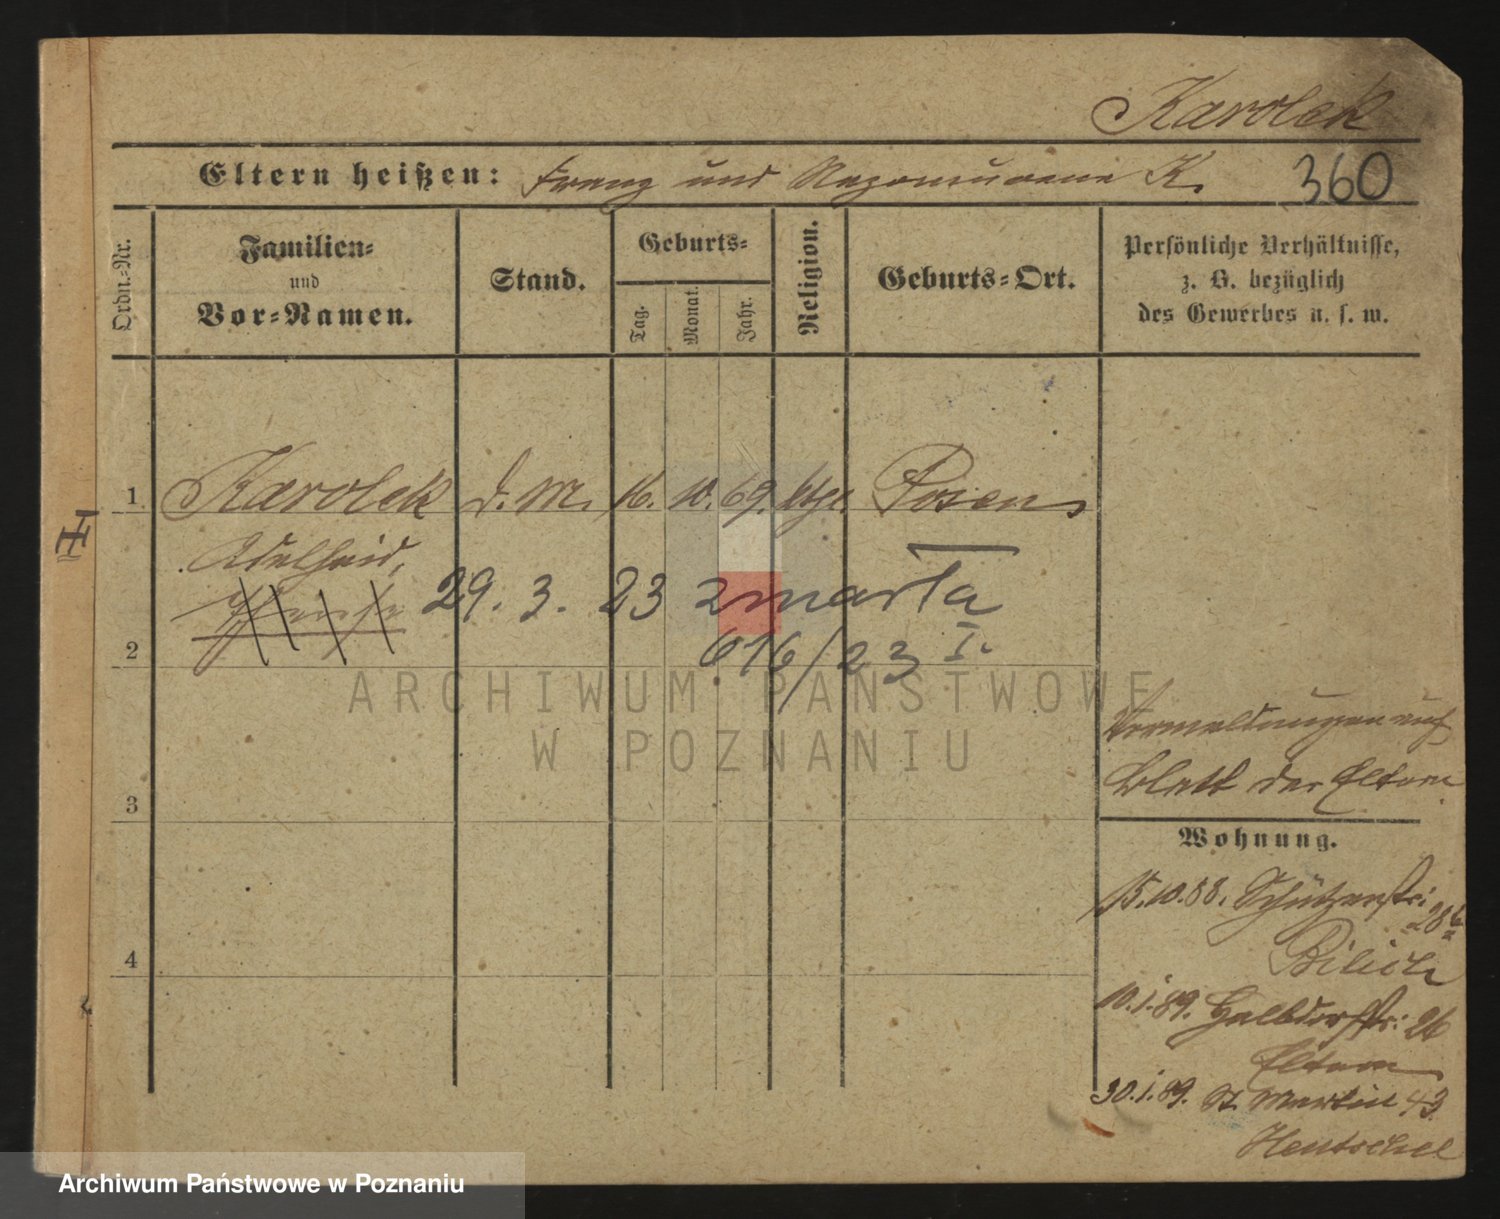 Karolek
Eltern heißen: Franz und Nepomucena K. 360
Ordn.-Nr.
Familien-
und
Vor-Namen.
Stand.
Geburts-
Tag.
Monat.
Jahr.
Religion.
Geburts-Ort.
Persönliche Verhältnisse,
z. B. bezüglich
des Gewerbes u. s. w.
1 Karolek d. M. 16. 10. 69. ktg. Posen
Adelheid,
29. 3. 23 zmarła
616/23 I.
2
3
4
Vermeldungen auf
Blatt der Eltern
Wohnung.
15.10.88. Schützenstr:
28
10.1.89. Halbdorfstr: 26
Eltern
30.1.89. St. Martin 43
Hentschel
III
ARCHIWUM PAŃSTWOWE
W POZNANIU
Archiwum Państwowe w Poznaniu